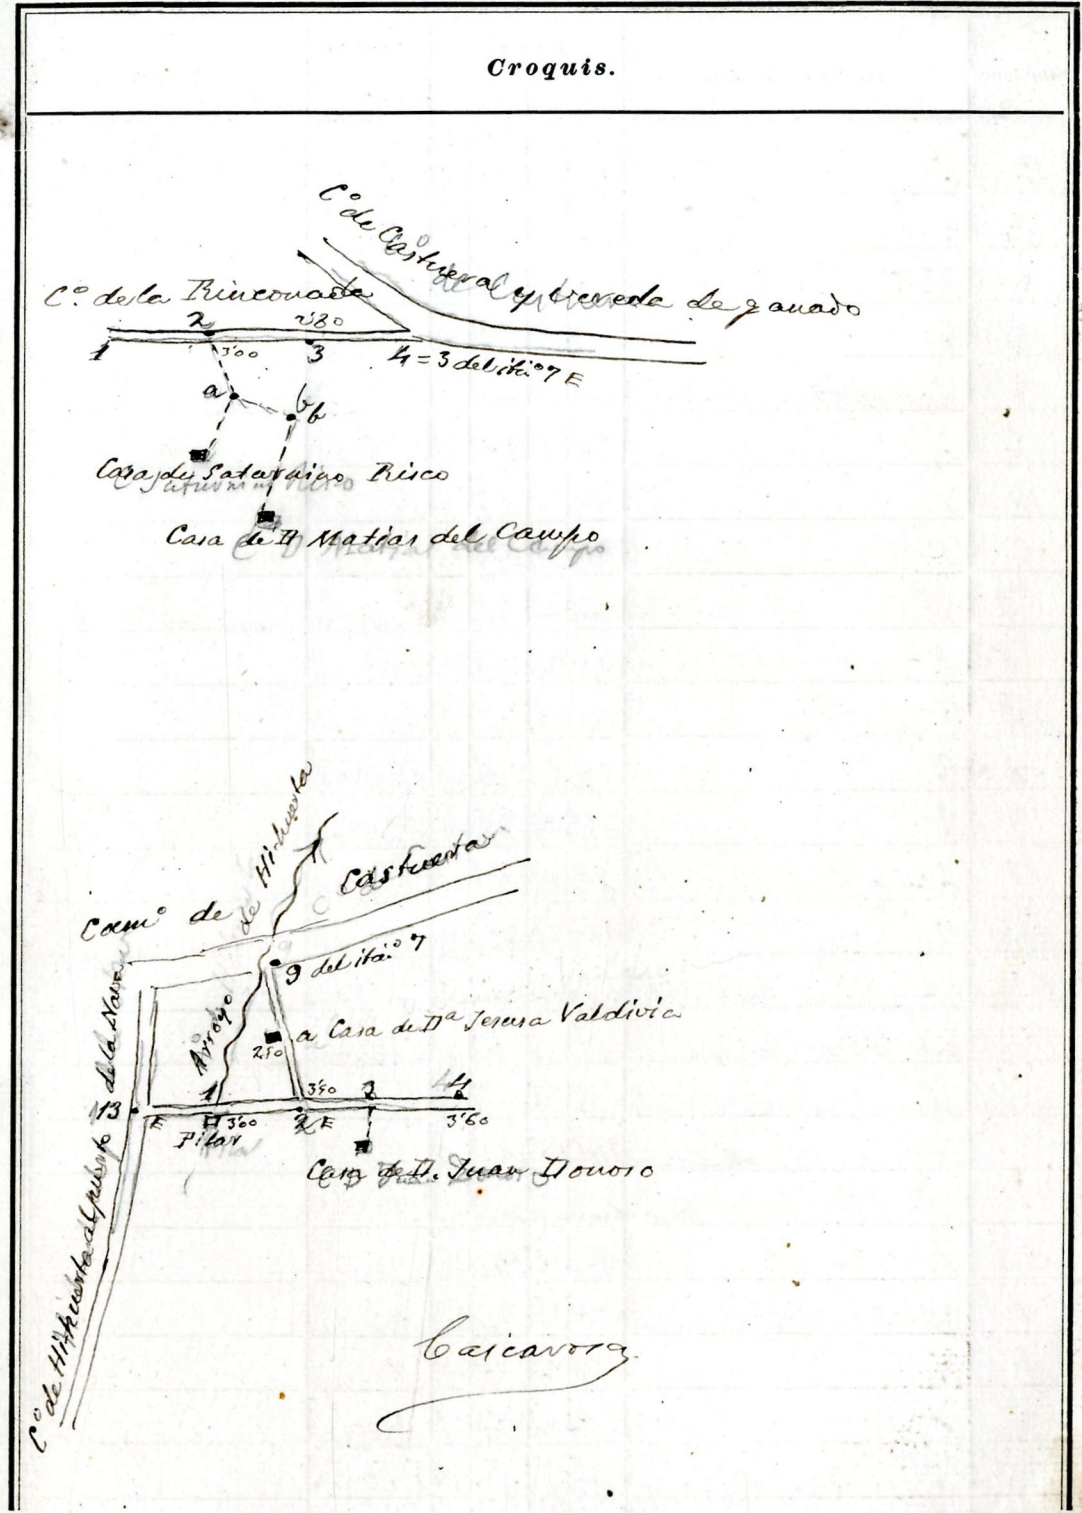 Croquis.
Cº de Castuera y vereda de ganado
Cº de la Rinconada
2 2'80
1 3'00 3 4 = 3 del itiº 7 E
a b
Casa de Saturnino Risco
Casa de D Matias del Campo
Camº de Castuera
Arroyo de Hihuerta
9 del itiº 7
a Casa de Dª Teresa Valdivia
2'50
1 3'50 3 4
13 E 3'00 2 E 3'60
Pilar
Casa de D. Juan Donoso
Cº de Hihuerta al puerto de la Nava